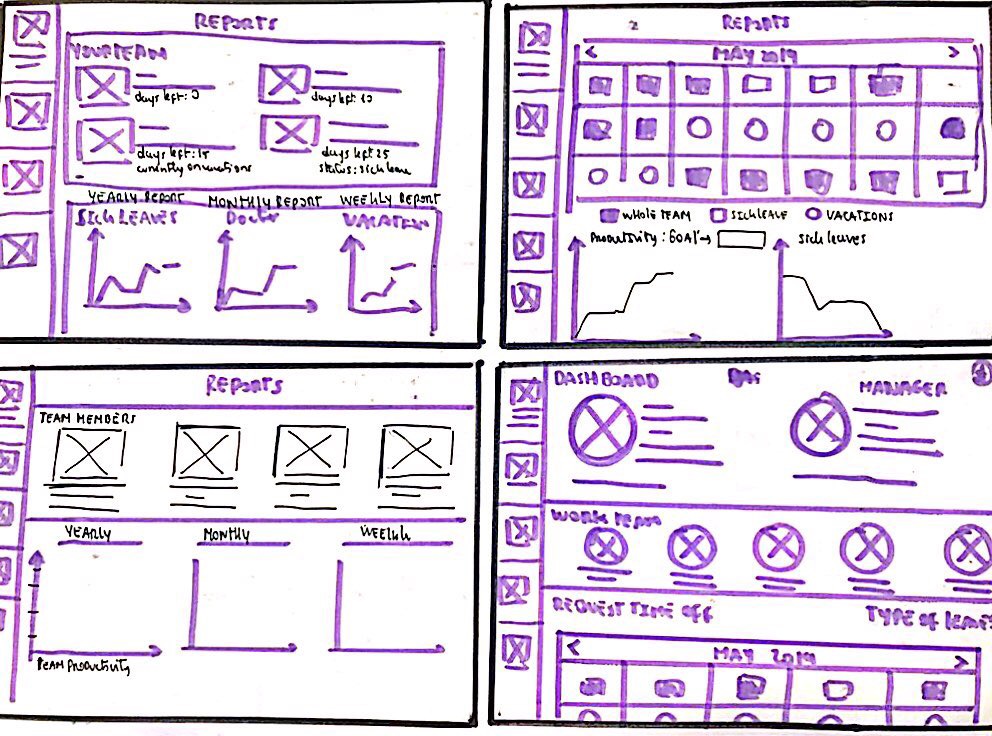 REPORTS
YOUR TEAM
days left: 0
days left: 10
days left: 15
currently on vacations
days left 25
status: sick leave
YEARLY REPORT
MONTHLY REPORT
WEEKLY REPORT
SICK LEAVES
VACATION
2
REPORTS
< MAY 2019 >
WHOLE TEAM
SICK LEAVE
VACATIONS
Productivity: GOAL→
sick leaves
REPORTS
TEAM MEMBERS
YEARLY
MONTHLY
WEEKLY
TEAM PRODUCTIVITY
DASHBOARD
MANAGER
WORK TEAM
REQUEST TIME OFF
TYPE OF LEAVES
< MAY 2019 >